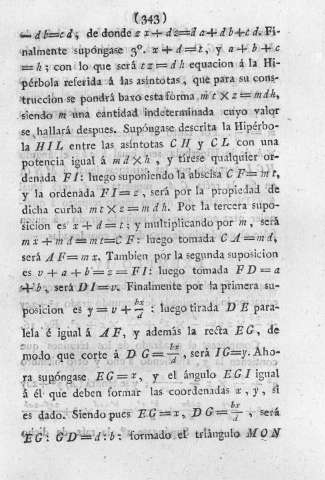 (343)
— d b = c d; de donde z x + d z = d a + d b + c d. Fi-
nalmente supóngase 3º. x + d = t, y a + b + c
= h; con lo que será t z = d h equacion á la Hi-
pérbola referida á las asíntotas, que para su cons-
truccion se pondrá baxo esta forma m t × z = m d h,
siendo m una cantidad indeterminada cuyo valor
se hallará despues. Supóngase descrita la Hipérbo-
la H I L entre las asíntotas C H y C L con una
potencia igual á m d × h, y tírese qualquier or-
denada F I: luego suponiendo la abscisa C F = m t,
y la ordenada F I = z, será por la propiedad de
dicha curba m t × z = m d h. Por la tercera supo-
sicion es x + d = t; y multiplicando por m, será
m x + m d = m t = C F: luego tomada C A = m d,
será A F = m x. Tambien por la segunda suposicion
es v + a + b = z = F I: luego tomada F D = a
+ b, será D I = v. Finalmente por la primera su-
posicion es y = v + bx/d : luego tirada D E para-
lela é igual á A F, y además la recta E G, de
modo que corte á D G = bx/d, será I G = y. Aho-
ra supóngase E G = x, y el ángulo E G I igual
á él que deben formar las coordenadas x, y, si
es dado. Siendo pues E G = x, D G = bx/d, será
E G : G D = d : b : formado el triángulo M O N